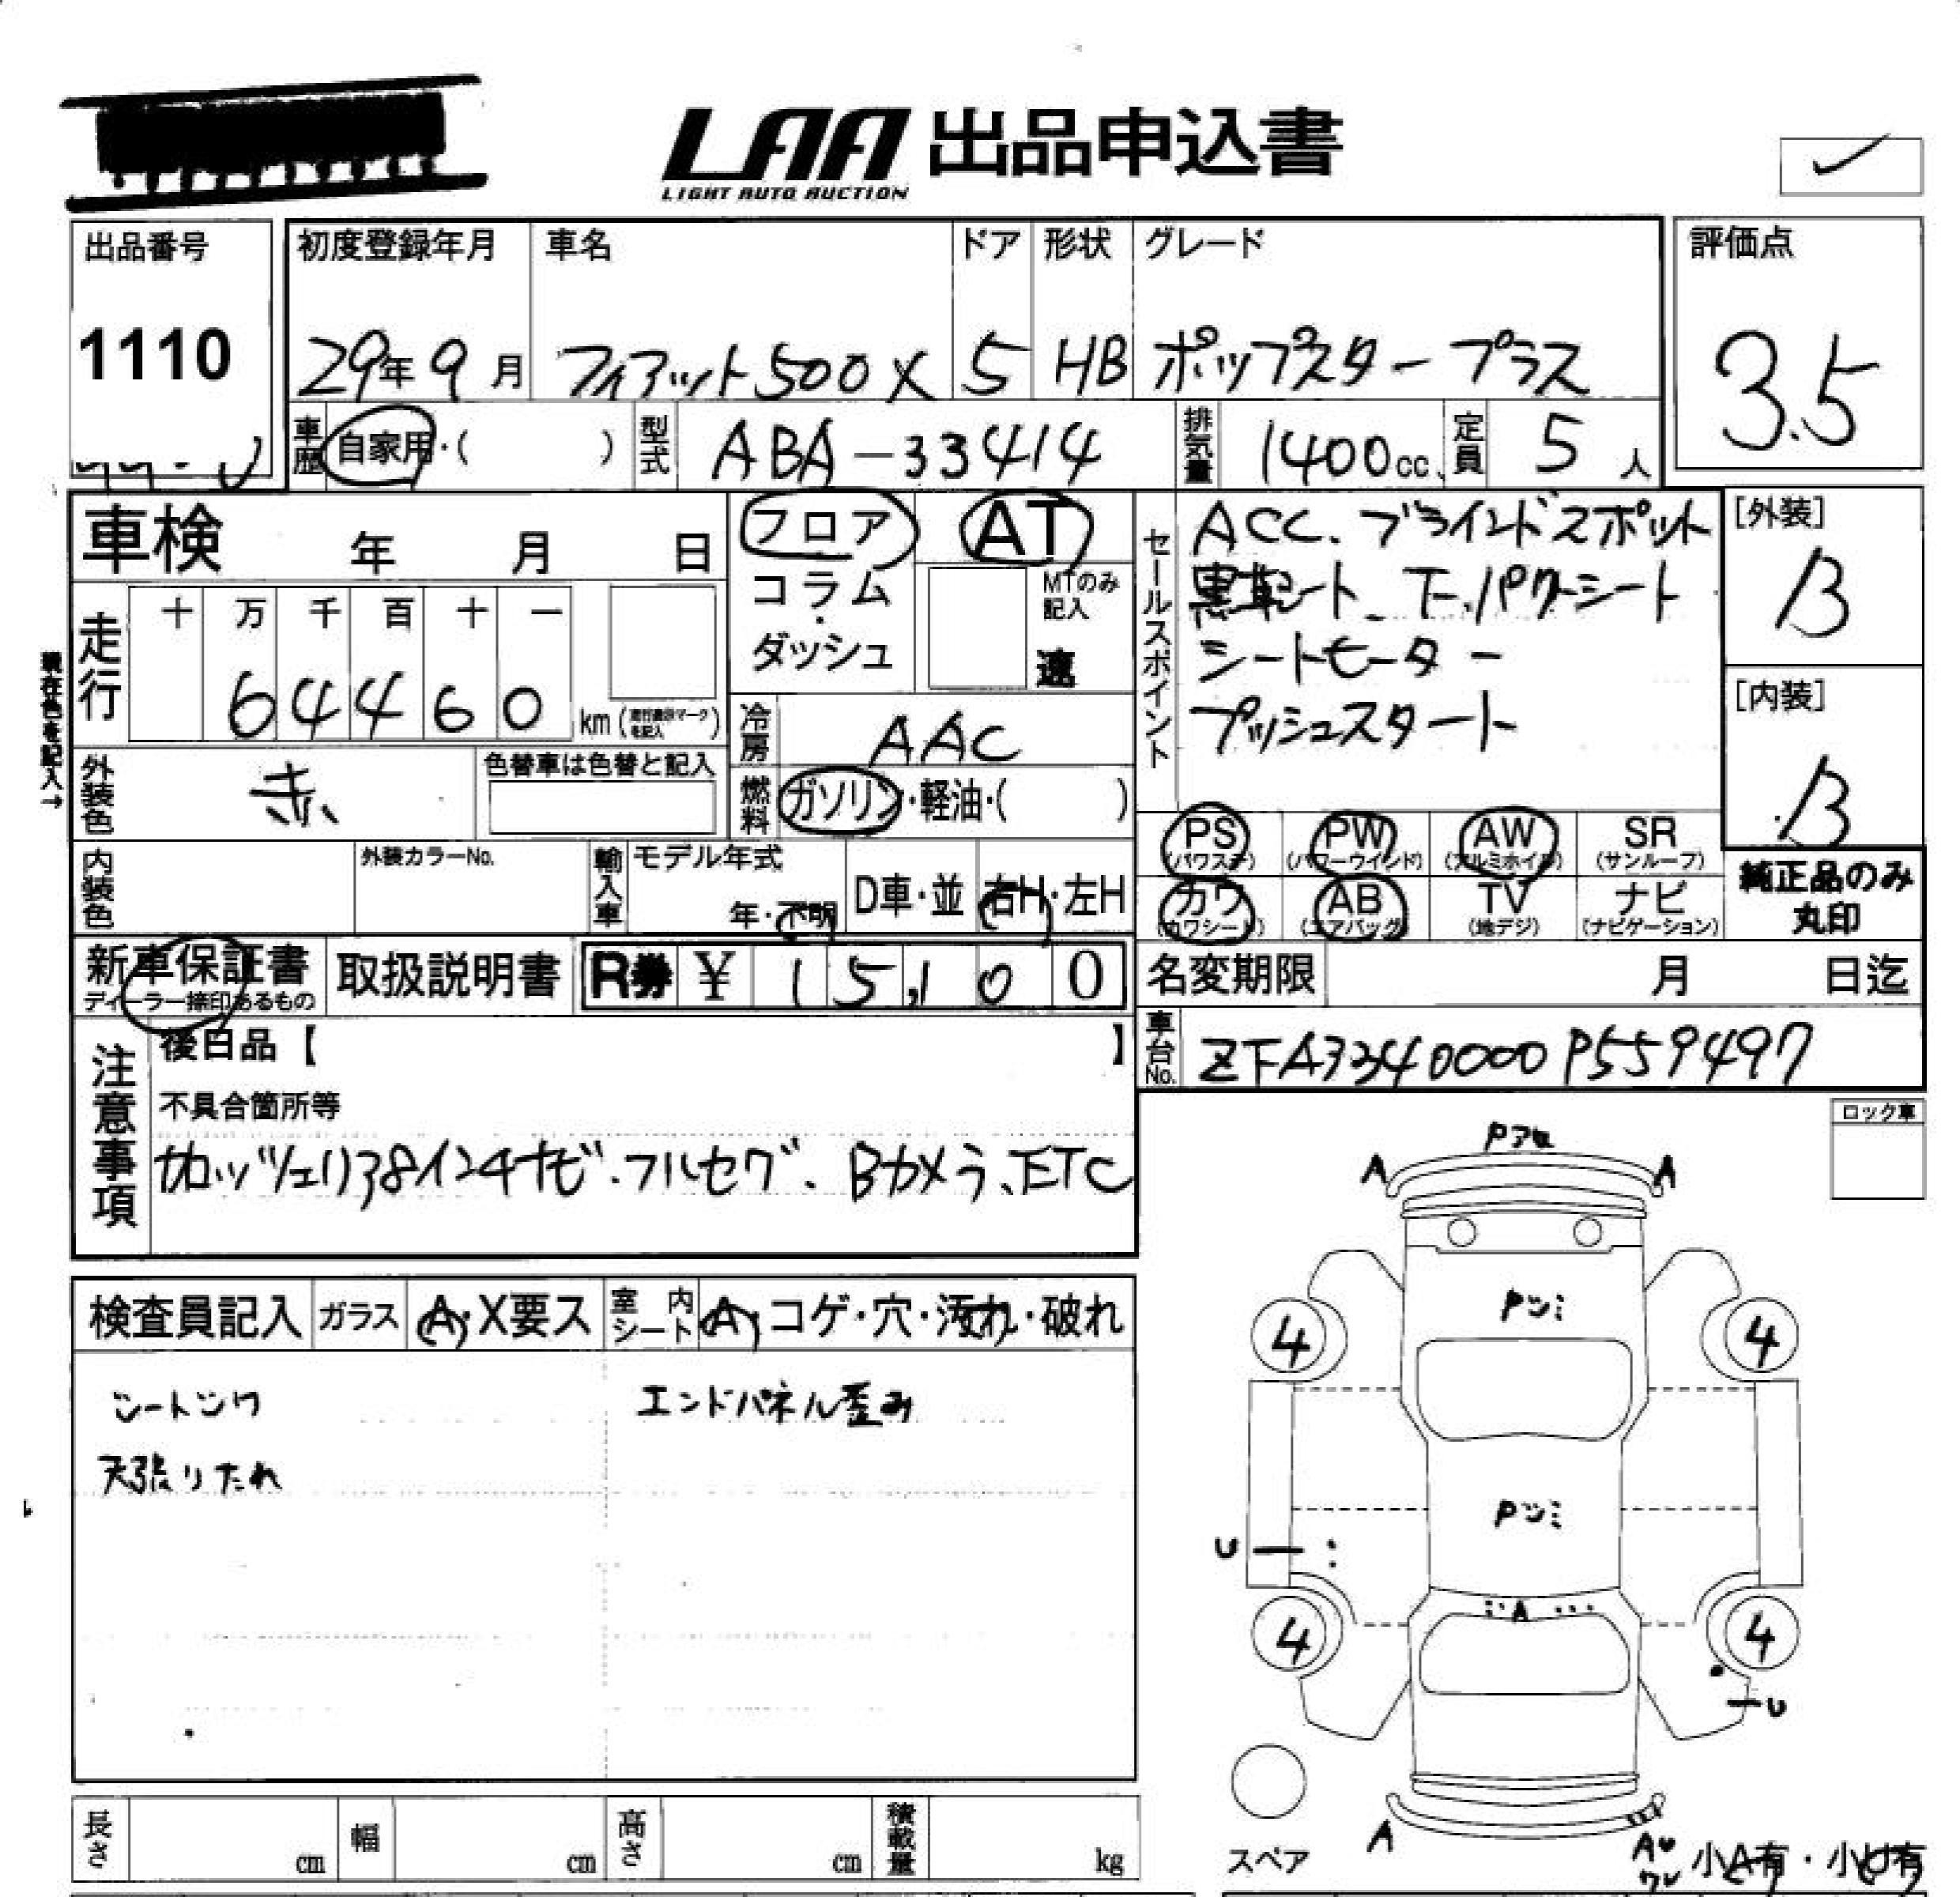 LAA 出品申込書
LIGHT AUTO AUCTION
出品番号
1110
初度登録年月
29年9月
車名
フィアット500X
ドア
5
形状
HB
グレード
ポップスタープラス
評価点
3.5
車歴
自家用・( )
型式
ABA-33414
排気量
1400cc
定員
5人
車検 年 月 日
フロア
コラム
・
ダッシュ
AT
MTのみ記入
速
セールスポイント
ACC、ブラインドスポット
黒革シート、下、パワーシート
シートヒーター
プッシュスタート
[外装]
B
[内装]
B
現在色を記入→
走行
十 万 千 百 十 一
6 4 4 6 0
km (走行表示マークを記入)
冷房
AAC
外装色
赤
色替車は色替と記入
燃料
ガソリン・軽油・( )
PS
(パワステ)
PW
(パワーウインド)
AW
(アルミホイル)
SR
(サンルーフ)
カワ
(カワシート)
AB
(エアバッグ)
TV
(地デジ)
ナビ
(ナビゲーション)
純正品のみ
丸印
内装色
外装カラーNo.
輸入車
モデル年式
年・不明
D車・並
右H・左H
新車保証書
ディーラー捺印あるもの
取扱説明書
R券 ¥ 15,100
名変期限 月 日迄
車台No.
ZFA3340000P559497
注意事項
後日品【 】
不具合箇所等
サイバーナビ
フルセグ、Bカメラ、ETC
ロック車
検査員記入
ガラス
A・X要ス
室内シート
A・コゲ・穴・汚れ・破れ
シートシワ
天張りたれ
エンドパネル歪み
A
A
Pツミ
4
4
Pツミ
U
A
4
4
U
A
スペア
小A有・小U有
長さ cm
幅 cm
高さ cm
積載量 kg